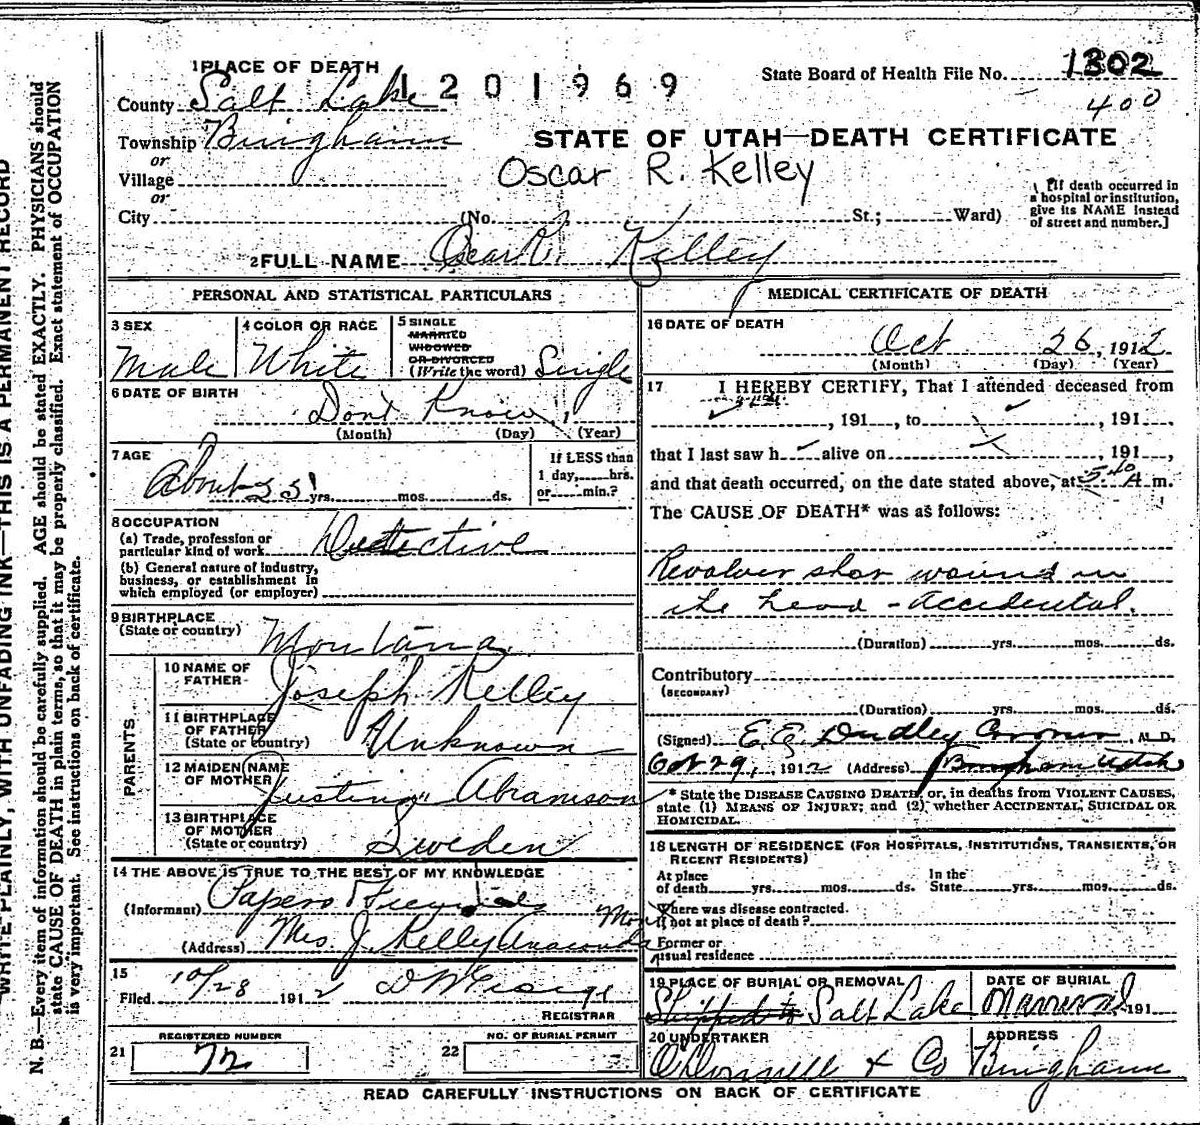 1 PLACE OF DEATH
1201969
State Board of Health File No. 1302
400
County Salt Lake
Township Bingham
or
Village
or
City (No. St.; Ward)
STATE OF UTAH—DEATH CERTIFICATE
Oscar R. Kelley
[If death occurred in
a hospital or institution,
give its NAME instead
of street and number.]
2 FULL NAME Oscar R. Kelley
PERSONAL AND STATISTICAL PARTICULARS
3 SEX
Male
4 COLOR OR RACE
White
5 SINGLE
MARRIED
WIDOWED
OR DIVORCED
(Write the word) Single
6 DATE OF BIRTH
Dont Know
(Month) (Day) (Year)
7 AGE
About yrs. mos. ds.
If LESS than
1 day, hrs.
or min.?
8 OCCUPATION
(a) Trade, profession or
particular kind of work Detective
(b) General nature of industry,
business, or establishment in
which employed (or employer)
9 BIRTHPLACE
(State or country) Montana
PARENTS
10 NAME OF
FATHER Joseph Kelley
11 BIRTHPLACE
OF FATHER
(State or country) Unknown
12 MAIDEN NAME
OF MOTHER Justina Abramson
13 BIRTHPLACE
OF MOTHER
(State or country) Sweden
14 THE ABOVE IS TRUE TO THE BEST OF MY KNOWLEDGE
(Informant) Papers & Friends
(Address) Mrs. J. Kelly Anaconda Mont
15
Filed 10/28 1912
REGISTRAR
REGISTERED NUMBER
21 72
NO. OF BURIAL PERMIT
22
MEDICAL CERTIFICATE OF DEATH
16 DATE OF DEATH
Oct 26, 1912
(Month) (Day) (Year)
17 I HEREBY CERTIFY, That I attended deceased from
, 191 , to , 191 ,
that I last saw h alive on , 191 ,
and that death occurred, on the date stated above, at 5.40 A m.
The CAUSE OF DEATH* was as follows:
Revolver shot wound in
the head - accidental.
(Duration) yrs. mos. ds.
Contributory
(SECONDARY)
(Duration) yrs. mos. ds.
(Signed) E. E. Dudley Coroner, M.D.
Oct 29, 1912 (Address) Bingham Utah
* State the DISEASE CAUSING DEATH, or, in deaths from VIOLENT CAUSES,
state (1) MEANS OF INJURY; and (2) whether ACCIDENTAL, SUICIDAL OR
HOMICIDAL.
18 LENGTH OF RESIDENCE (FOR HOSPITALS, INSTITUTIONS, TRANSIENTS, OR
RECENT RESIDENTS)
At place In the
of death yrs. mos. ds. State yrs. mos. ds.
Where was disease contracted.
if not at place of death?
Former or
usual residence
19 PLACE OF BURIAL OR REMOVAL
Shipped to Salt Lake
DATE OF BURIAL
191
20 UNDERTAKER
O'Donnell & Co
ADDRESS
Bingham
READ CAREFULLY INSTRUCTIONS ON BACK OF CERTIFICATE
WRITE PLAINLY, WITH UNFADING INK—THIS IS A PERMANENT RECORD
N. B.—Every item of information should be carefully supplied. AGE should be stated EXACTLY. PHYSICIANS should
state CAUSE OF DEATH in plain terms, so that it may be properly classified. Exact statement of OCCUPATION
is very important. See instructions on back of certificate.